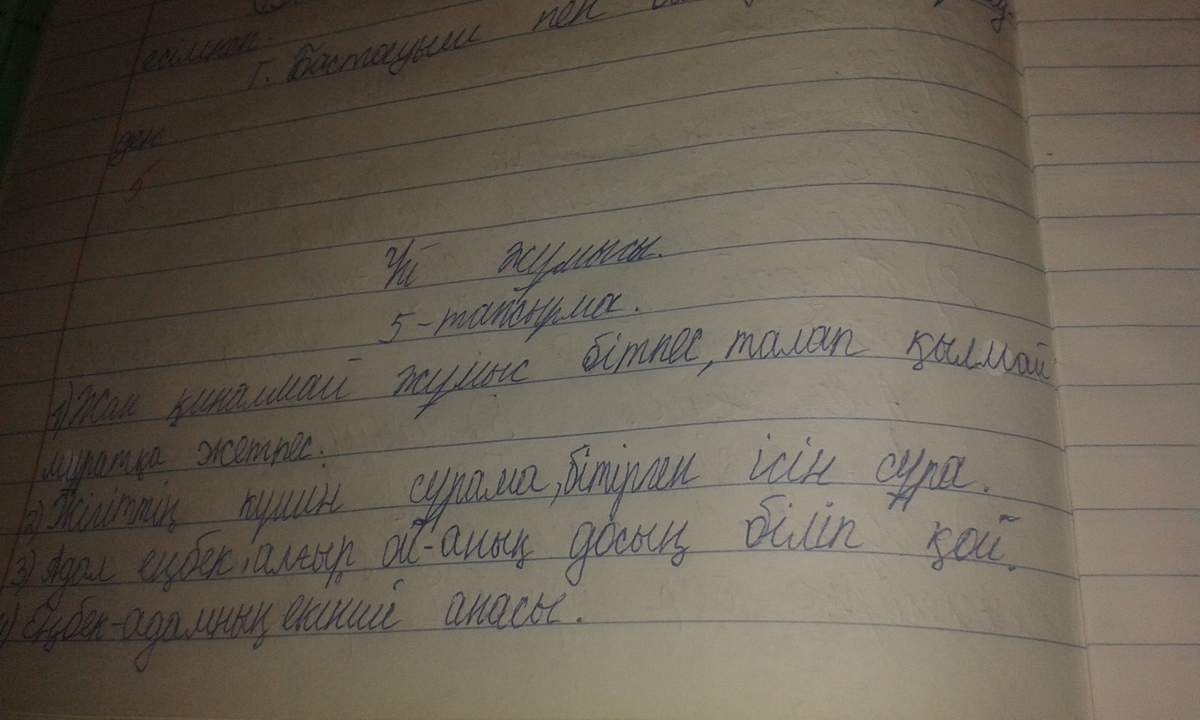 есімкен.
Г. Бастауыш пен
ден
5
Үй жумысы.
5-тапсырма.
1) Жан қиналмай жұмыс бітпес, талап қылмай
мұратқа жетпес.
2) Жігіттің күшін сұрама, бітірген ісін сұра.
3) Адал еңбек, алғыр ой-анық досың біліп қой.
4) Еңбек-адамның екінші анасы.